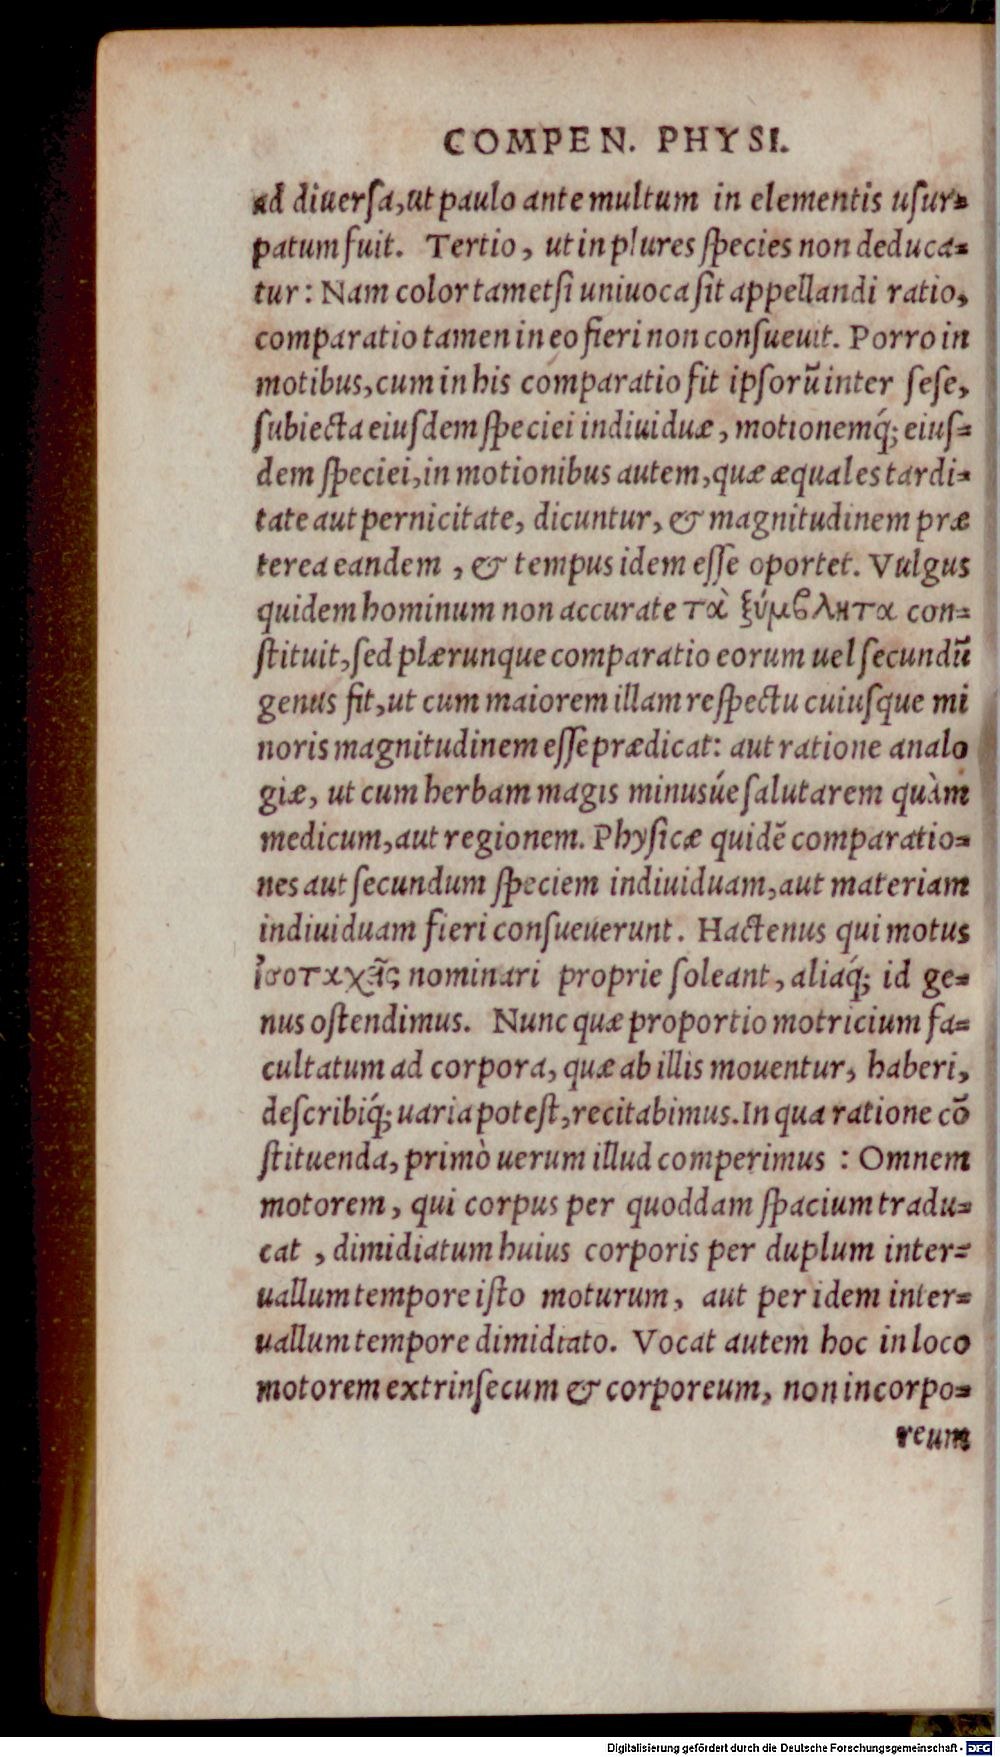 COMPEN. PHYSI.
ad diuerſa, ut paulo ante multum in elementis uſur-
patum fuit. Tertio, ut in plures ſpecies non deduca-
tur: Nam color tametſi uniuoca ſit appellandi ratio,
comparatio tamen in eo fieri non conſueuit. Porro in
motibus, cum in his comparatio fit ipſorũ inter ſeſe,
ſubiecta eiuſdem ſpeciei indiuiduæ, motionemq́; eiuſ-
dem ſpeciei, in motionibus autem, quæ æquales tardi-
tate aut pernicitate, dicuntur, & magnitudinem præ
terea eandem, & tempus idem eſſe oportet. Vulgus
quidem hominum non accurate τὰ ξύμβλητα con-
ſtituit, ſed plærunque comparatio eorum uel ſecundũ
genus fit, ut cum maiorem illam reſpectu cuiuſque mi
noris magnitudinem eſſe prædicat: aut ratione analo
giæ, ut cum herbam magis minusúe ſalutarem quàm
medicum, aut regionem. Phyſicæ quidẽ comparatio-
nes aut ſecundum ſpeciem indiuiduam, aut materiam
indiuiduam fieri conſueuerunt. Hactenus qui motus
ἰσοταχᾶς nominari proprie ſoleant, aliaq́; id ge-
nus oſtendimus. Nunc quæ proportio motricium fa-
cultatum ad corpora, quæ ab illis mouentur, haberi,
deſcribiq́; uaria poteſt, recitabimus. In qua ratione cõ
ſtituenda, primò uerum illud comperimus : Omnem
motorem, qui corpus per quoddam ſpacium tradu-
cat , dimidiatum huius corporis per duplum inter-
uallum tempore iſto moturum, aut per idem inter-
uallum tempore dimidiato. Vocat autem hoc in loco
motorem extrinſecum & corporeum, non incorpo-
reum
Digitalisierung gefördert durch die Deutsche Forschungsgemeinschaft - DFG